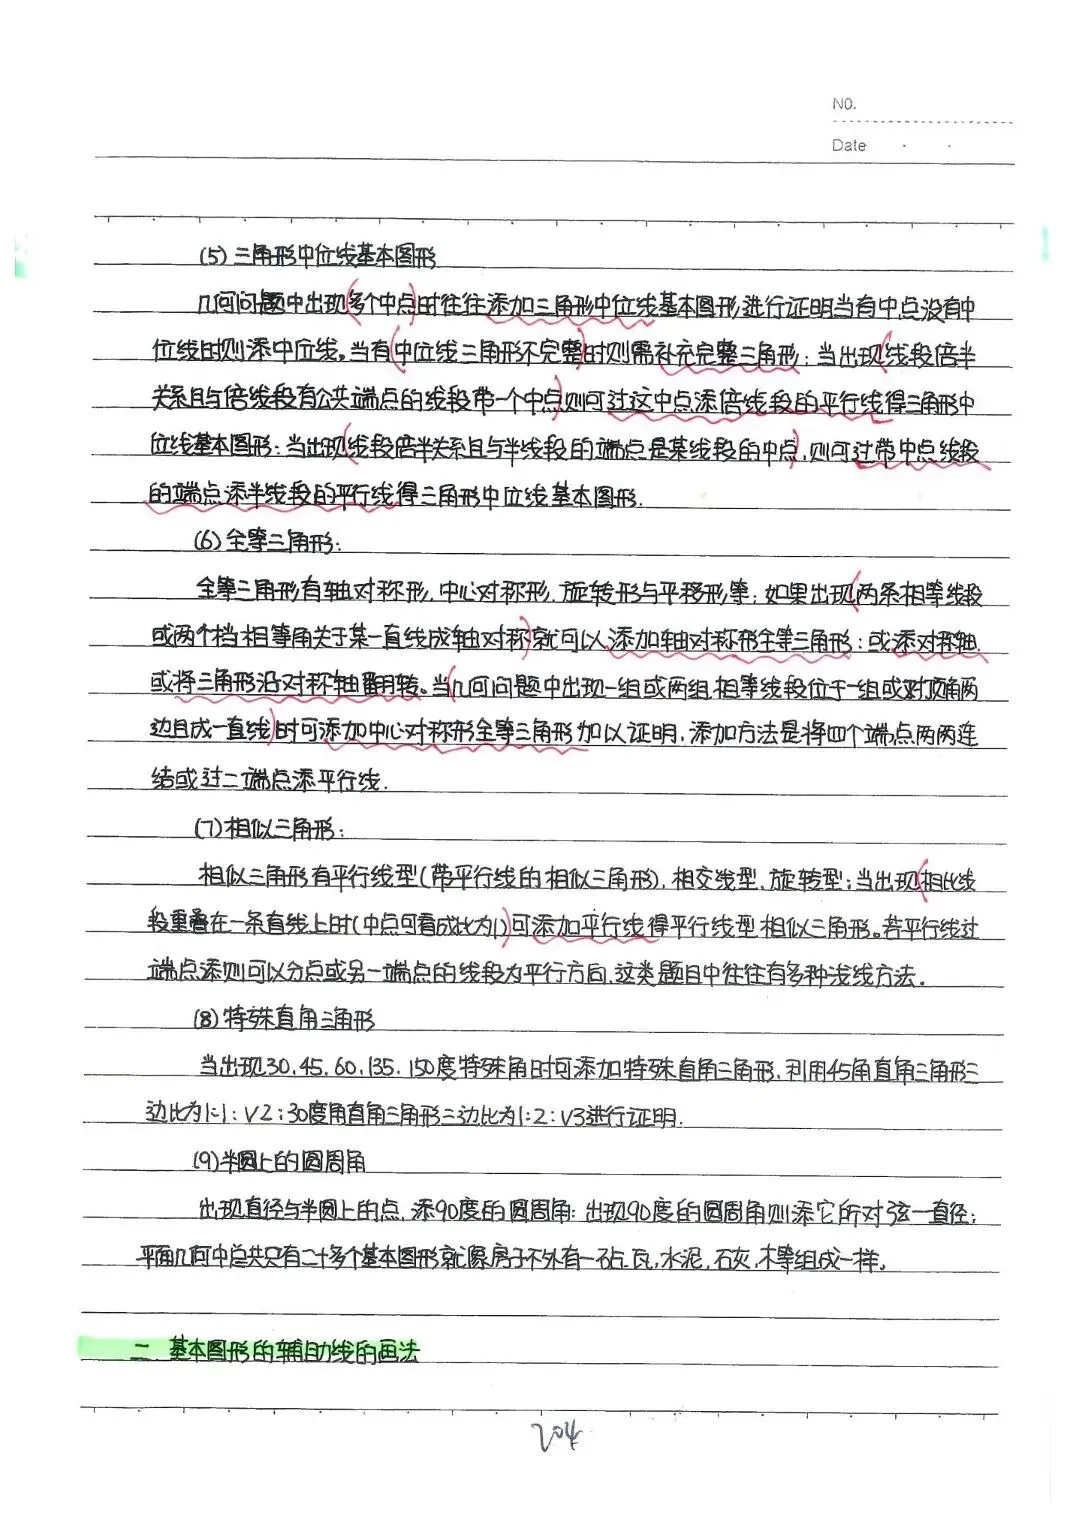 NO.
Date
(5) 三角形中位线基本图形
几何问题中出现(多个中点)时往往添加三角形中位线基本图形进行证明当有中点没有中
位线时则添中位线。当有(中位线三角形不完整)时则需补充完整三角形; 当出现(线段倍半
关系且与倍线段有公共端点的线段带一个中点)则可过这中点添倍线段的平行线得三角形中
位线基本图形; 当出现(线段倍半关系且与半线段的端点是某线段的中点), 则可过带中点线段
的端点添半线段的平行线得三角形中位线基本图形.
(6) 全等三角形:
全等三角形有轴对称形, 中心对称形, 旋转形与平移形等; 如果出现(两条相等线段
或两个档相等角关于某一直线成轴对称)就可以添加轴对称形全等三角形: 或添对称轴,
或将三角形沿对称轴翻转。当(几何问题中出现一组或两组相等线段位于一组或对顶角两
边且成一直线)时可添加中心对称形全等三角形加以证明, 添加方法是将四个端点两两连
结或过二端点添平行线.
(7) 相似三角形:
相似三角形有平行线型(带平行线的相似三角形), 相交线型, 旋转型; 当出现(相比线
段重叠在一条直线上时(中点可看成比为1)可添加平行线得平行线型相似三角形。若平行线过
端点添则可以分点或另一端点的线段为平行方向, 这类题目中往往有多种浅线方法.
(8) 特殊直角三角形
当出现30, 45, 60, 135, 150度特殊角时可添加特殊直角三角形, 利用45角直角三角形三
边比为1:1:√2; 30度角直角三角形三边比为1:2:√3进行证明.
(9) 半圆上的圆周角
出现直径与半圆上的点, 添90度的圆周角: 出现90度的圆周角则添它所对弦一直径;
平面几何中总共只有二十多个基本图形就像房子不外有一砧, 瓦, 水泥, 石灰, 木等组成一样。
二 基本图形的辅助线的画法
204